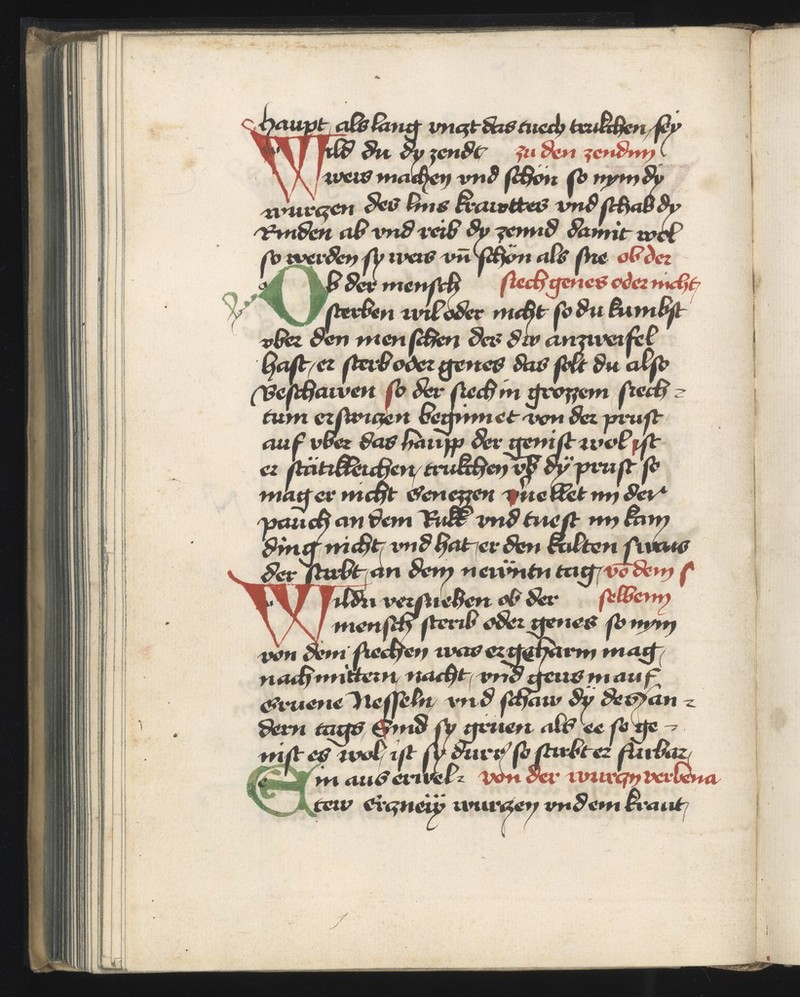 haupt als lang vnczt das tuech trukchen sey
Wild du dy zendt zu den zendnn
weis machen vnd schön so nym dy
wurczen des lins krawttes vnd schab dy
Rinden ab vnd reib dy zennd damit wol
so werden sy weis vn̄ schön als sne ob der
Ob der mensch siech genes oder nicht
sterben wil oder nicht so du kumbst
vber den menschen des dw anzweifel
hast er sterb oder genes das solt du also
Beschawen so der siech in grozzem siech-
tum erswiczen beginnet von der prust
auf vber das haupp der genist wol ist
er stätikleichen trukchen vb dÿ prust so
mag er nicht Genezzen vnellet im der
pauch an dem Rukk vnd tuest im kain
ding nicht vnd hat er den kalten swais
der stirbt an dem newntn tag vō dem s
Wildu versuehen ob der selbenn
mensch sterib oder genes so nym
von dem siechen was er geharm mag
nach mittern nacht vnd geus in auf
Gruene Nesseln vnd schaw dy des an-
dern tags Sind sy gruen als ee so ge-
nist es wol ist sy durr so stirbt er fürbar
Ein aus erwel- von der wurczn verbena
tew Erczneÿ wurczen vnd ein kraut